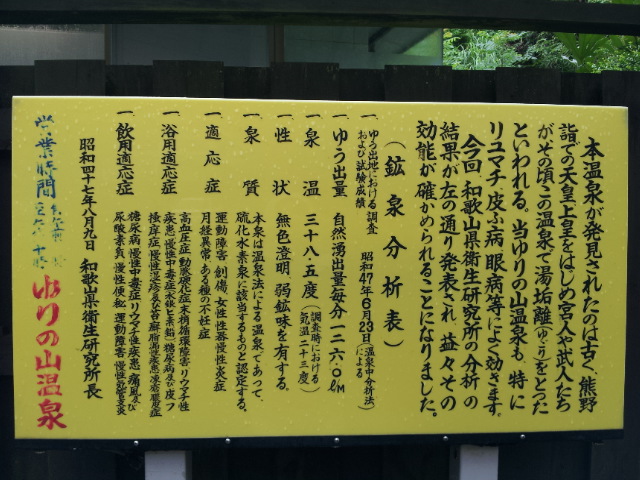 本温泉が発見されたのは古く、熊野
詣での天皇上皇をはじめ宮人や武人たち
がその頃この温泉で湯垢離(ゆごり)をとつた
といわれる。当ゆりの山温泉も、特に
リユマチ、皮ふ病、眼病等によく効きます。
今回、和歌山県衛生研究所の分析の
結果が左の通り発表され、益々その
効能が確かめられることになりました。
(鉱泉分析表)
一、ゆう出地における調査および試験成績 昭和47年6月23日(温泉中分析法)による
一、ゆう出量 自然湧出量毎分一二六・〇ℓM
一、泉温 三十八・五度(調査時における気温二十三度)
一、性状 無色澄明、弱鉱味を有する。
一、泉質 本泉は温泉法による温泉であって、
硫化水素泉に該当するものと認定する。
一、適応症 運動障害 創傷 女性性器慢性炎症
月経異常 ある種の不妊症
一、浴用適応症 高血圧症 動脈硬化症 末梢循環障害 リウマチ性
疾患 慢性中毒症(水銀と素鉛) 糖尿病及び皮フ
掻痒症 慢性湿疹及び苔癬 角化症
一、飲用適応症 糖尿病 慢性中毒症 リウマチ性疾患 痛風及び
尿酸素質 慢性便秘 運動障害 慢性気管支炎
昭和四十七年八月九日 和歌山県衛生研究所長
営業時間
ゆりの山温泉